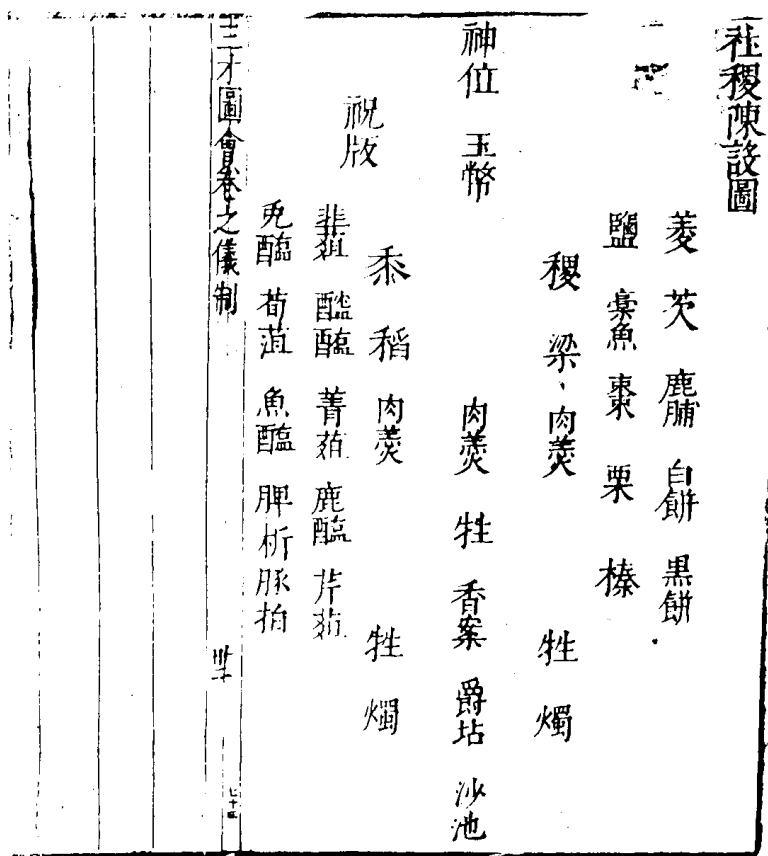 社稷陳設圖
菱 芡 鹿脯 白餅 黑餅
鹽 藁魚 棗 栗 榛
稷 梁 肉羮 牲 燭
神位 玉幣 肉羮 牲 香案 爵坫 沙池
黍 稻 肉羮 牲 燭
祝版
韭菹 醓醢 菁菹 鹿醢 芹菹
兎醢 荀菹 魚醢 脾析 豚拍
三才圖會卷之儀制